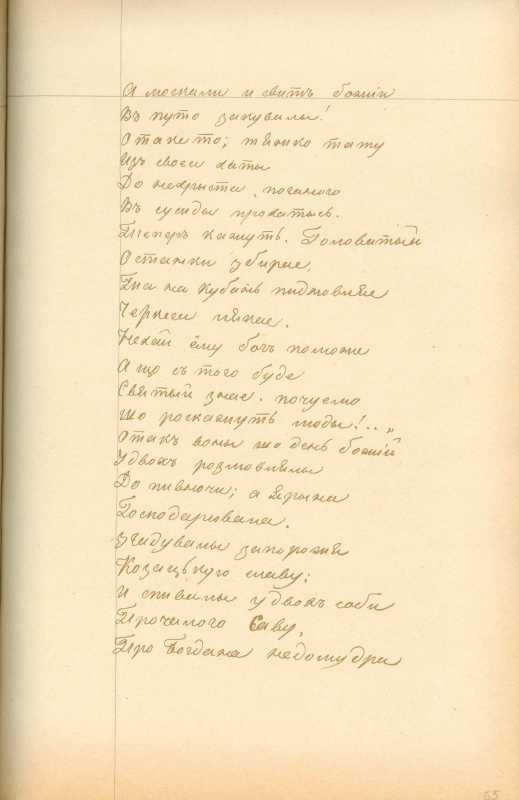 А москали и свитъ божій
Въ путо закувалы!
Отакето; тяжко тату
Изъ своеи хаты
До нехрыста поганого
Въ сусиды прохатысь.
Теперъ кажуть. Головатый
Останки збирае,
Та на Кубань пидмовляе
Черкеса лякае.
Нехай ёму богъ поможе
А що съ того буде
Святый знае. почуемо
Що роскажуть люды!..„
Отакъ воны що день божій
Удвохъ розмовлялы
До пивночи; а Ярына
Господарювала.
Згадувалы запорожя
Козацькую славу;
И спивалы удвохъ соби
Про Чалого Саву,
Про Богдана недомудра
65